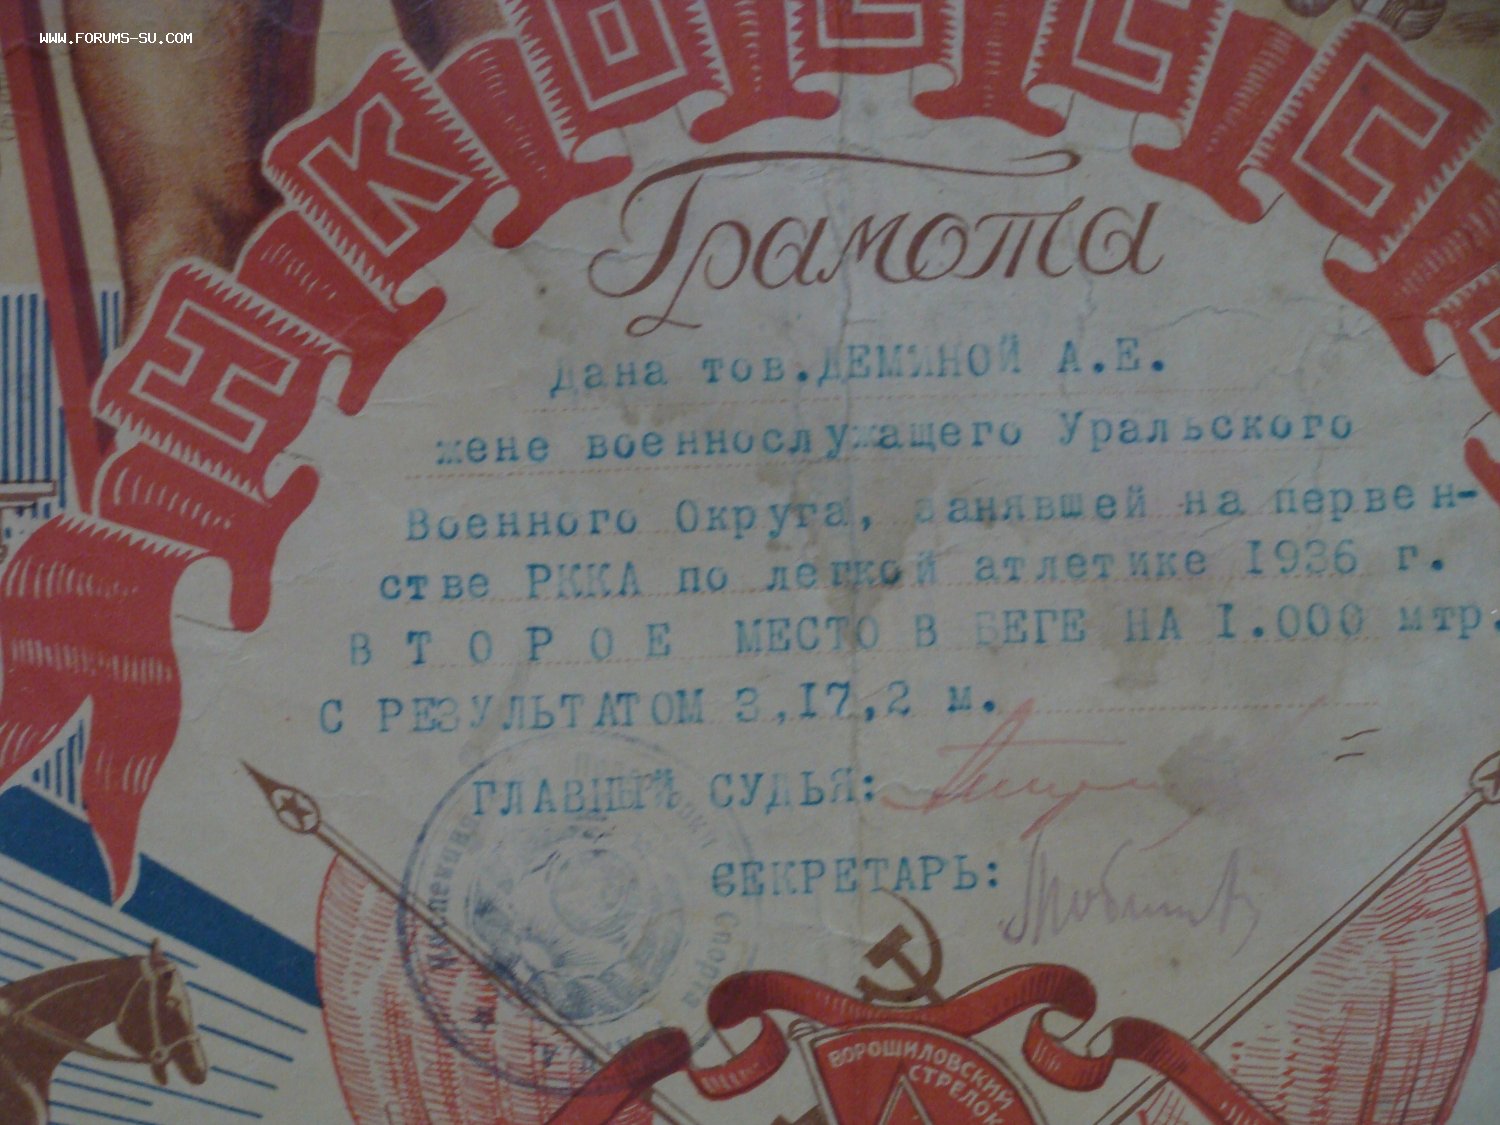 WWW.FORUMS-SU.COM
НКО СССР
Грамота
Дана тов.ДЕМИНОЙ А.Е.
жене военнослужащего Уральского
Военного Округа, занявшей на первен-
стве РККА по легкой атлетике 1936 г.
ВТОРОЕ МЕСТО В БЕГЕ НА 1.000 мтр.
С РЕЗУЛЬТАТОМ 3,17,2 м.
ГЛАВНЫЙ СУДЬЯ:
СЕКРЕТАРЬ:
Инспекция
Спорта
ВОРОШИЛОВСКИЙ
СТРЕЛОК